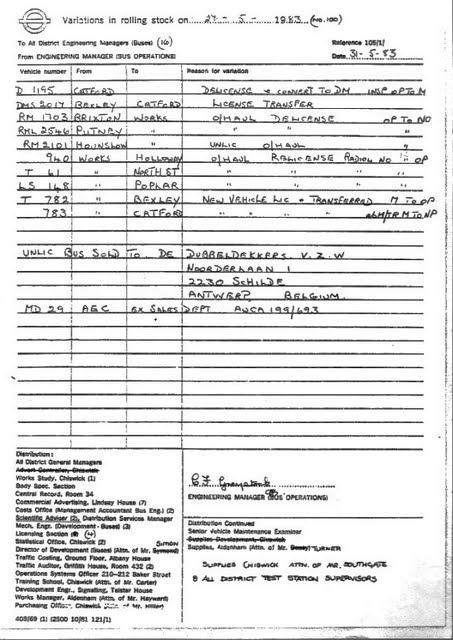 Variations in rolling stock on 27 - 5 - 1983 (No. 100)
To All District Engineering Managers (Buses) (16)
Reference 105/1/
From ENGINEERING MANAGER (BUS OPERATIONS)
Date 31-5-83
Vehicle number From To Reason for variation
D 1195 CATFORD DELICENSE & CONVERT TO DM INSP OP TO M
DMS 2017 BEXLEY CATFORD LICENSE TRANSFER
RM 1703 BRIXTON WORKS O/HAUL DELICENSE OP TO NO
RML 2546 PUTNEY " " " "
RM 2101 HOUNSLOW " UNLIC O/HAUL "
940 WORKS HOLLOWAY O/HAUL RELICENSE RADIO NO OP
T 61 " NORTH ST " " " "
LS 148 " POPLAR " " " "
T 782 " BEXLEY NEW VEHICLE LIC & TRANSFERRED M TO OP
783 " CATFORD " " " " M TO NP
UNLIC BUS SOLD TO DE DUBBELDEKKERS V.Z.W
NOORDERLAAN 1
2230 SCHILDE
ANTWERP, BELGIUM.
MD 29 AEC EX SALES DEPT AUCA 199/693
Distribution:
All District General Managers
Advert Controller, Chiswick
Works Study, Chiswick (1)
Body Spec. Section
Central Record, Room 34
Commercial Advertising, Lindsey House (7)
Costs Office (Management Accountant Bus Eng.) (2)
Scientific Adviser (2), Distribution Services Manager
Mech. Engr. (Development - Buses) (3)
Licensing Section (4)
Statistical Office, Chiswick (2) SIMON
Director of Development (Buses) (Attn. of Mr. Symond)
Traffic Costing, Ground Floor, Albany House
Traffic Auditor, Griffith House, Room 432 (2)
Operations Systems Officer 210-212 Baker Street
Training School, Chiswick (Attn. of Mr. Carter)
Development Engr., Signalling, Telstar House
Works Manager, Aldenham (Attn. of Mr. Hayward)
Purchasing Officer, Chiswick (Attn. of Mr. Hiller)
405/69 (1) (2500 10/81 121/1)
ENGINEERING MANAGER (BUS OPERATIONS)
Distribution Continued
Senior Vehicle Maintenance Examiner
Supplies Development, Chiswick
Supplies, Aldenham (Attn. of Mr. TURNER
SUPPLIES CHISWICK ATTN. OF MR. SOUTHGATE
8 ALL DISTRICT TEST STATION SUPERVISORS